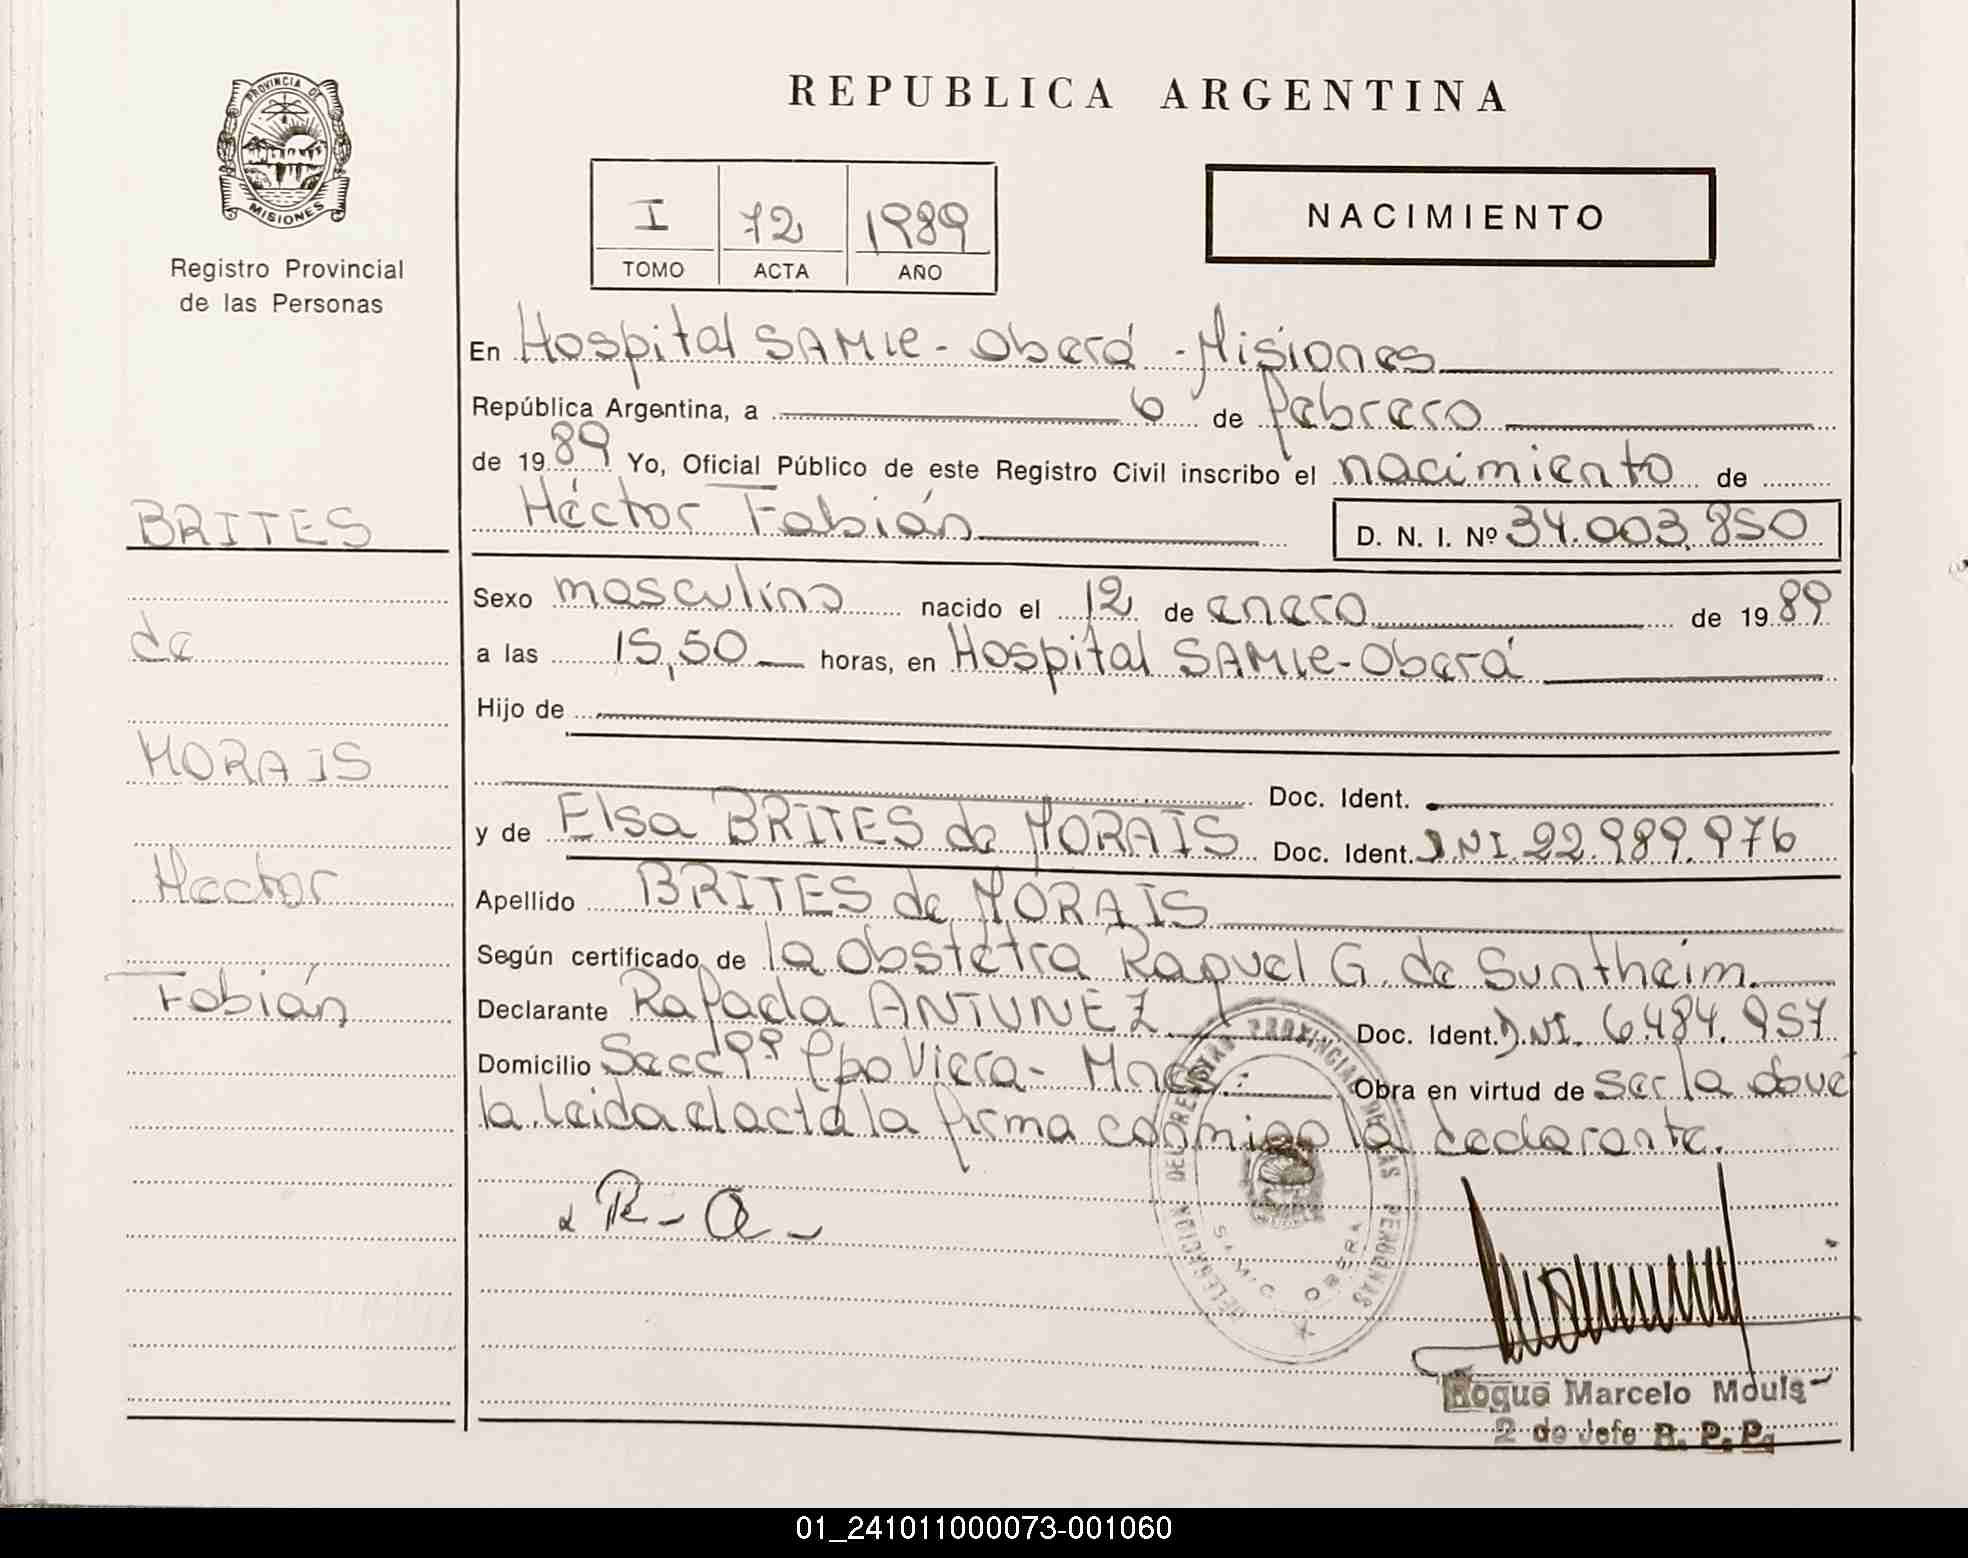 PROVINCIA DE
MISIONES
Registro Provincial
de las Personas
REPUBLICA ARGENTINA
I 72 1989
TOMO ACTA AÑO
NACIMIENTO
En Hospital SAMIC - Oberá - Misiones
República Argentina, a 6 de febrero
de 1989 Yo, Oficial Público de este Registro Civil inscribo el nacimiento de
Héctor Fabián
D. N. I. Nº 34.003.850
BRITES
de
MORAIS
Hector
Fabián
Sexo masculino nacido el 12 de enero de 1989
a las 15,50 horas, en Hospital SAMIC - Oberá
Hijo de
Doc. Ident.
y de Elsa BRITES de MORAIS Doc. Ident. D.N.I. 22.989.976
Apellido BRITES de MORAIS
Según certificado de la obstétra Raquel G. de Suntheim.
Declarante Rafaela ANTUNEZ Doc. Ident. D.NI. 6.484.957
Domicilio Secc 9º Cpo Viera - Mnes. Obra en virtud de ser la abue
la. Leida el acta la firma conmigo la declarante.
R - A -
DELEGACION DEL REGISTRO PROVINCIAL DE LAS PERSONAS
SAMIC OBERA
Roque Marcelo Mouls
2 do Jefe R. P. P.
01_241011000073-001060